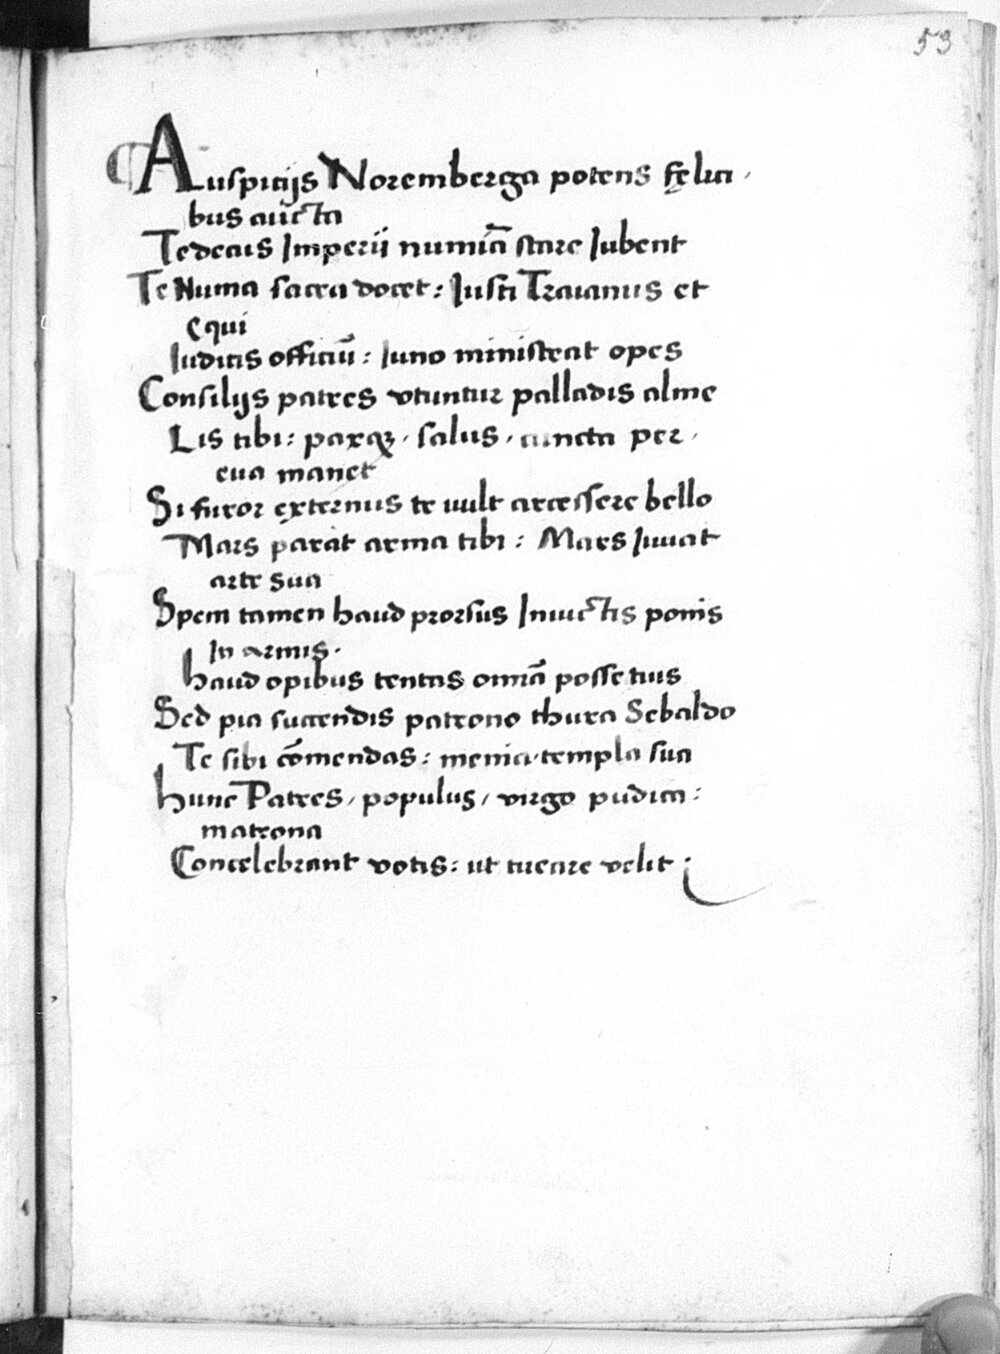 53
Auspicijs Noremberga potens fęlici
bus aucta
Te decus Imperii numiā stare Iubent
Te Numa sacra docet: Iusti Traianus et
equi
Iudicis officiū: Iuno ministrat opes
Consilijs patres vtuntur palladis alme
Lis tibi: paxqȝ, salus, cuncta per,
eua manet
Si furor externus te uult arcessere bello
Mars parat arma tibi: Mars Iuuat
arte sua
Spem tamen haud prorsus Inuictis ponis
In armis.
haud opibus tentas omīa posse tuis
Sed pia succendis patrono thura Sebaldo
Te sibi cōmendas: menia, templa sua
hunc Patres, populus, virgo pudica:
matrona
Concelebrant votis: ut tueare velit;